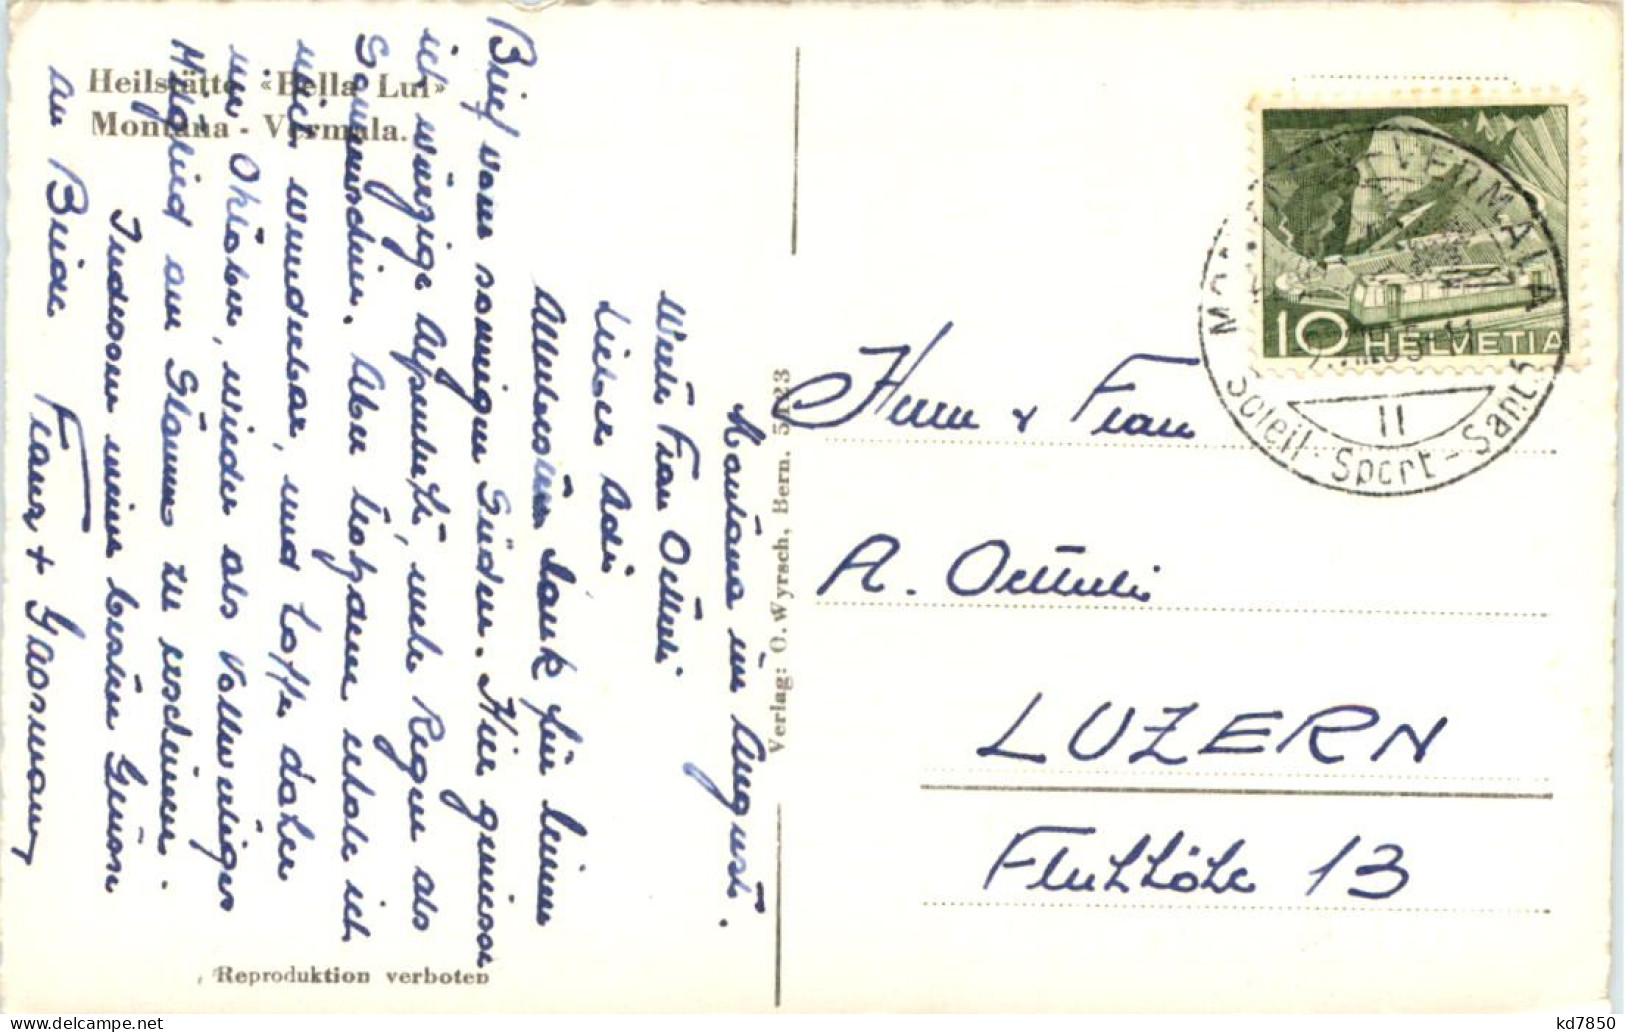 Heilstätte «Bella Lui»
Montana - Vermala.
Montana im August.
Werte Frau Oetterli
Lieber Adi
Allerbesten Dank für Deinen
Brief vom sonnigen Süden. Hier geniesse
ich würzige Alpenluft, mehr Regen als
Sonnenschein. Aber trotzdem erhole ich
mich wunderbar, und hoffe daher
im Oktober, wieder als Vollwertiges
Mitglied am Stamm zu erscheinen.
Indessen meine besten Grüsse
an Beide Franz + Gassmann
Reproduktion verboten
Verlag: O. Wyrsch, Bern. 5123
Herrn & Frau
A. Oetterli
LUZERN
Fluhhöhe 13
10 HELVETIA
MONTANA-VERMALA
II
Soleil - Sport - Santé
kd7850